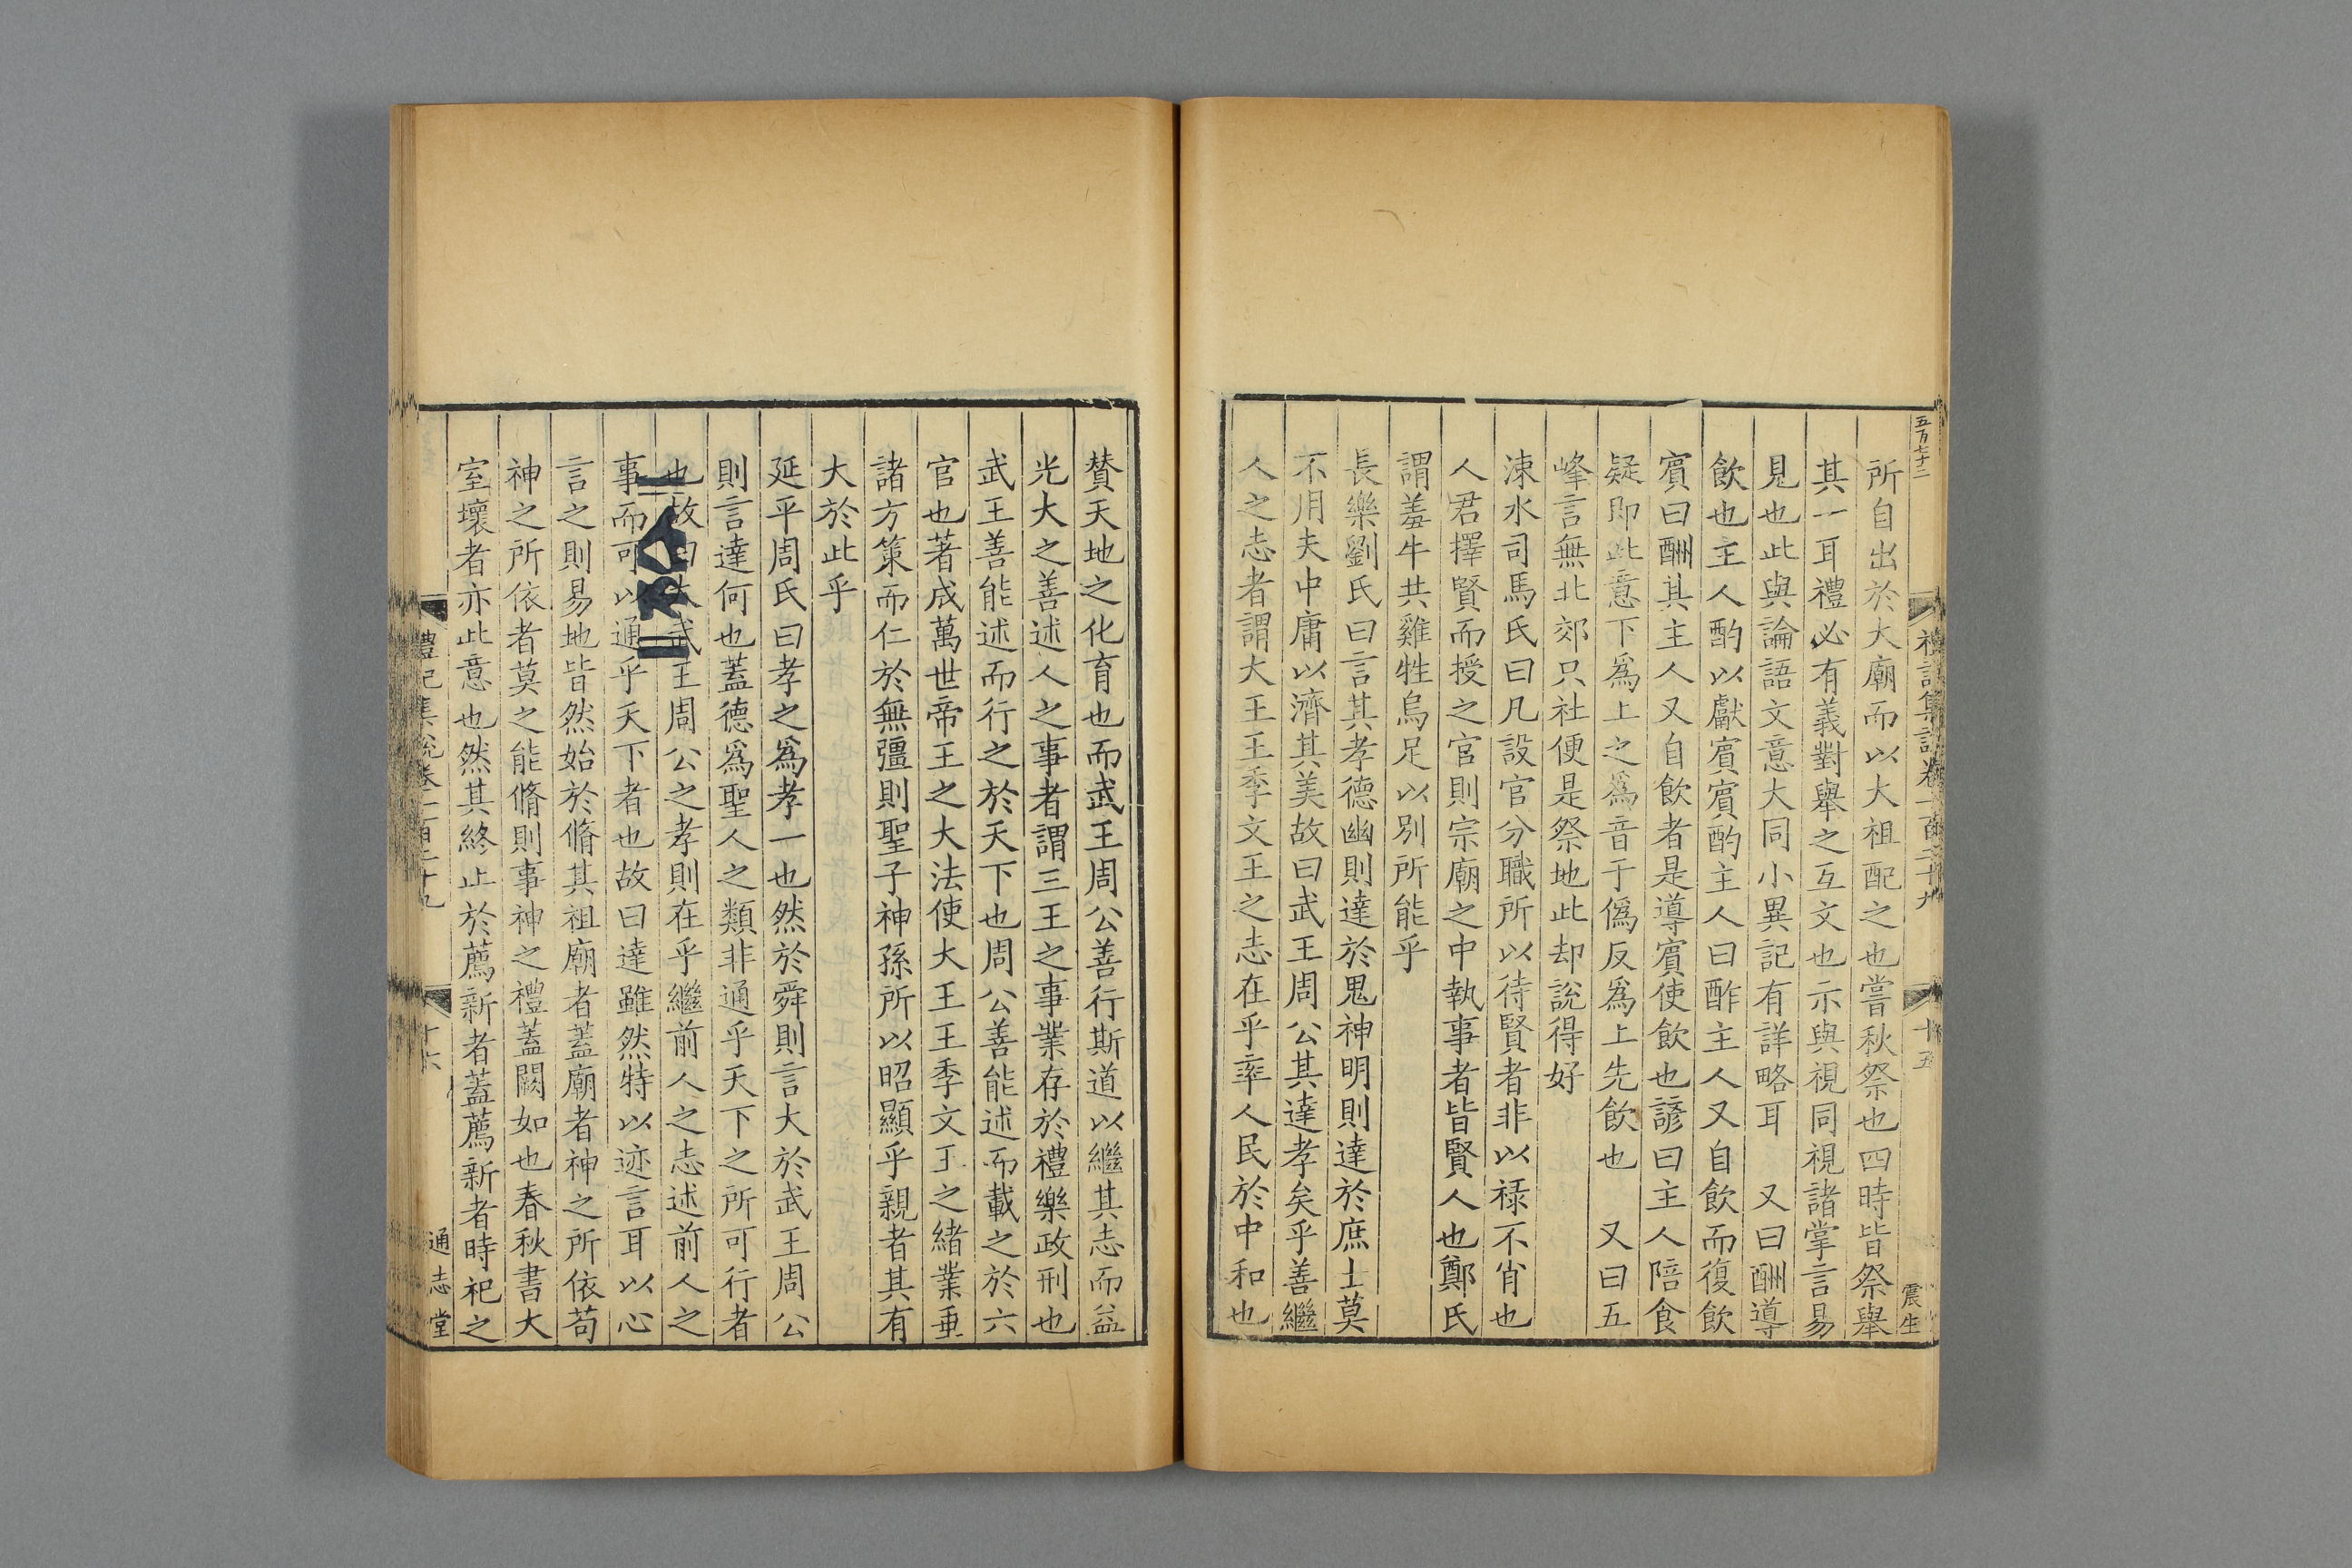 五百七十二
禮記集說卷一百二十九
十五
震生
所自出於大廟而以大祖配之也嘗秋祭也四時皆祭舉
其一耳禮必有義對舉之互文也示與視同視諸掌言易
見也此與論語文意大同小異記有詳略耳 又曰酬導
飲也主人酌以獻賔賔酌主人曰酢主人又自飲而復飲
賔曰酬其主人又自飲者是導賔使飲也諺曰主人陪食
疑即此意下爲上之爲音于僞反爲上先飲也 又曰五
峰言無北郊只社便是祭地此却說得好
涑水司馬氏曰凡設官分職所以待賢者非以祿不肖也
人君擇賢而授之官則宗廟之中執事者皆賢人也鄭氏
謂羞牛共雞牲烏足以別所能乎
長樂劉氏曰言其孝德幽則達於鬼神明則達於庶士莫
不用夫中庸以濟其美故曰武王周公其達孝矣乎善繼
人之志者謂大王王季文王之志在乎率人民於中和也
賛天地之化育也而武王周公善行斯道以繼其志而益
光大之善述人之事者謂三王之事業存於禮樂政刑也
武王善能述而行之於天下也周公善能述而載之於六
官也著成萬世帝王之大法使大王王季文王之緒業垂
諸方策而仁於無彊則聖子神孫所以昭顯乎親者其有
大於此乎
延平周氏曰孝之爲孝一也然於舜則言大於武王周公
則言達何也蓋德爲聖人之類非通乎天下之所可行者
也故曰大武王周公之孝則在乎繼前人之志述前人之
事而可以通乎天下者也故曰達雖然特以迹言耳以心
言之則易地皆然始於脩其祖廟者蓋廟者神之所依苟
神之所依者莫之能脩則事神之禮蓋闕如也春秋書大
室壞者亦此意也然其終止於薦新者蓋薦新者時祀之
禮記集說卷一百二十九
十六
通志堂